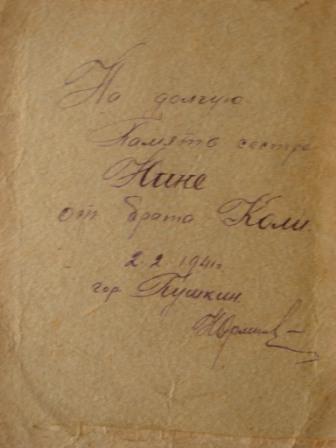 На долгую
Память сестре
Нине
от брата Коли.
2.2 1941г
гор. Пушкин.